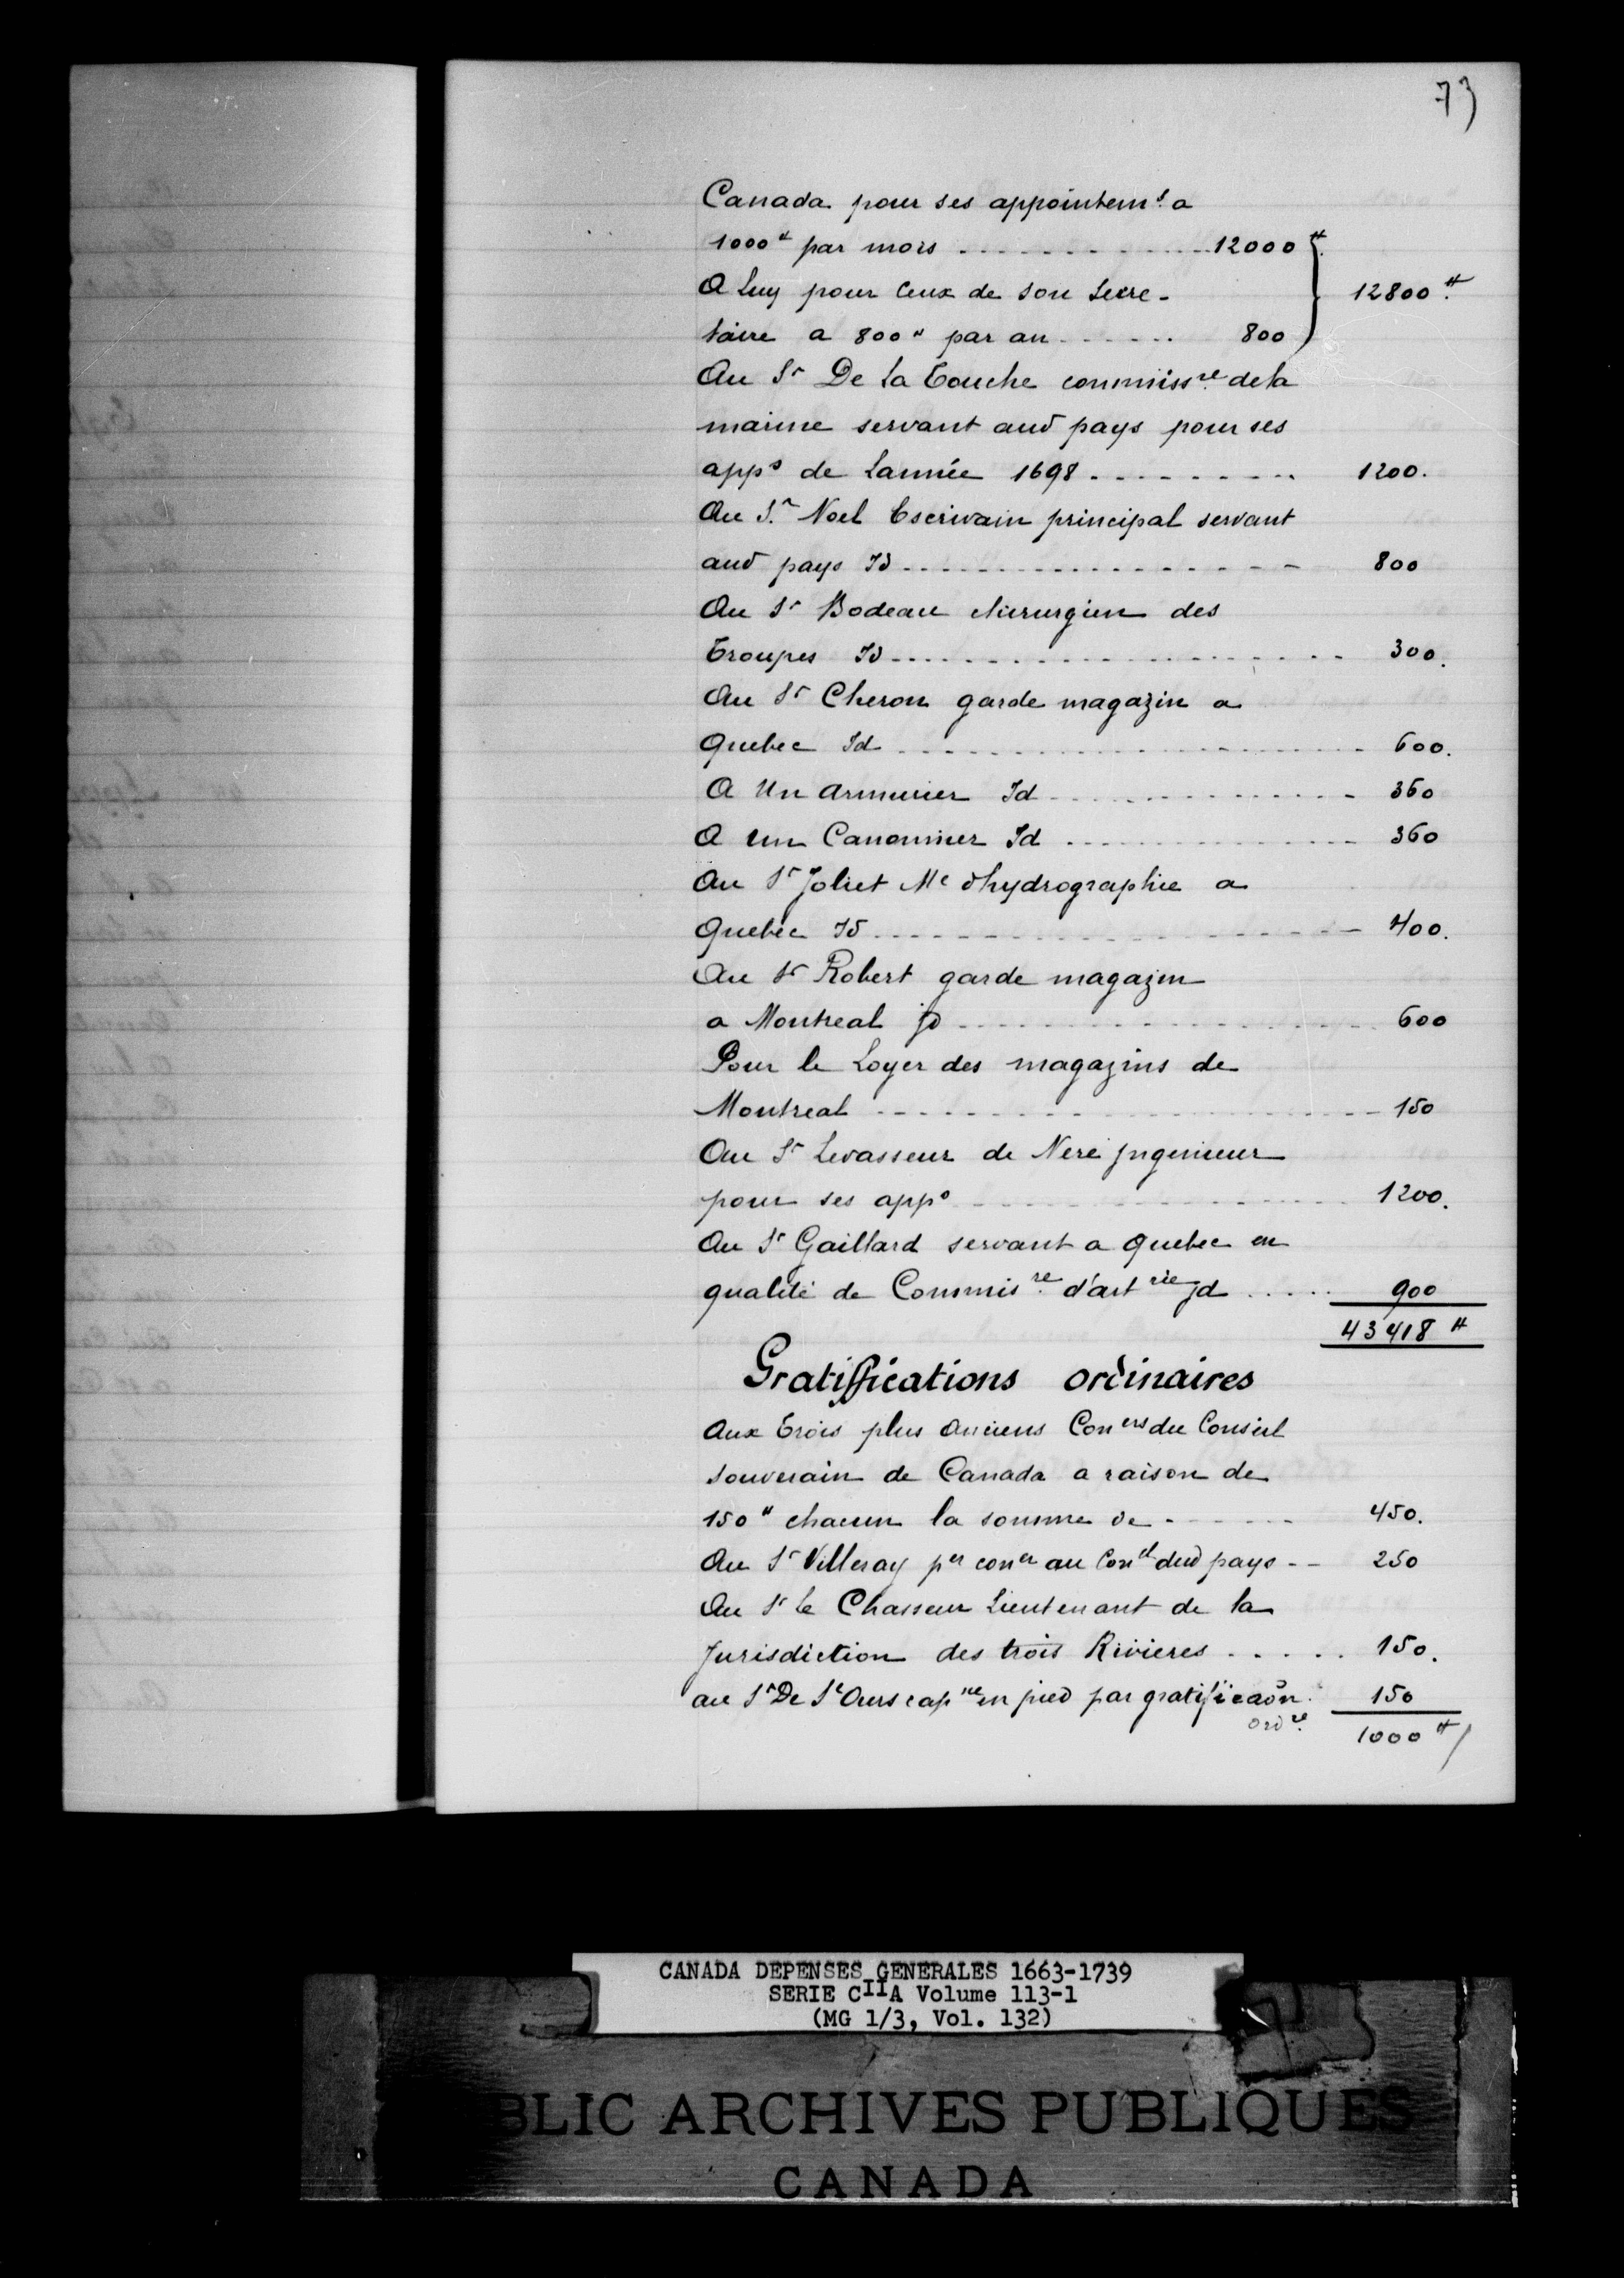 73
Canada pour ses appointemˢ a
1000ᴴ par mois ............ 12000ᴴ
A Luy pour Ceux de son Secre- 12800ᴴ
taire a 800ᴴ par an ...... 800
Au Sʳ De La Touche commissʳᵉ dela
marine servant aud pays pour ses
appˢ de Lannée 1698 ......... 1200.
Au Sʳ Noel Escrivain principal servant
aud pays Id .................. 800
Au Sʳ Bodeau chirurgien des
Troupes Id .................. 300.
Au Sʳ Cheron garde magazin a
Quebec Id .................. 600.
A Un Armurier Id ............ 360
A Un Canonnier Id ............ 360
Au Sʳ Joliet Mᵉ dhydrographie a
Quebec Id .................. 400.
Au Sʳ Robert garde magazin
a Montreal Jd .................. 600
Pour le Loyer des magazins de
Montreal .................. 150
Au Sʳ Levasseur de Neré Jngenieur
pour ses appˢ .................. 1200.
Au Sʳ Gaillard servant a Quebec en
qualité de Commisʳᵉ d'artʳⁱᵉ Jd ..... 900
43418ᴴ
Gratiffications ordinaires
Aux Trois plus Anciens Conᵉʳˢ du Conseil
souverain de Canada a raison de
150ᴴ chacun la somme de ...... 450.
Au Sʳ Villeray pᵉʳ conᵉʳ au Conˡ dud pays -- 250
Au Sʳ Le Chasseur Lieutenant de la
Jurisdiction des trois Rivieres ..... 150.
au Sʳ De Sᵗ Ours capⁿᵉ en pied par gratificaõn 150
ordʳᵉ
1000ᴴ
CANADA DEPENSES GENERALES 1663-1739
SERIE CIIA Volume 113-1
(MG 1/3, Vol. 132)
BLIC ARCHIVES PUBLIQUES
CANADA